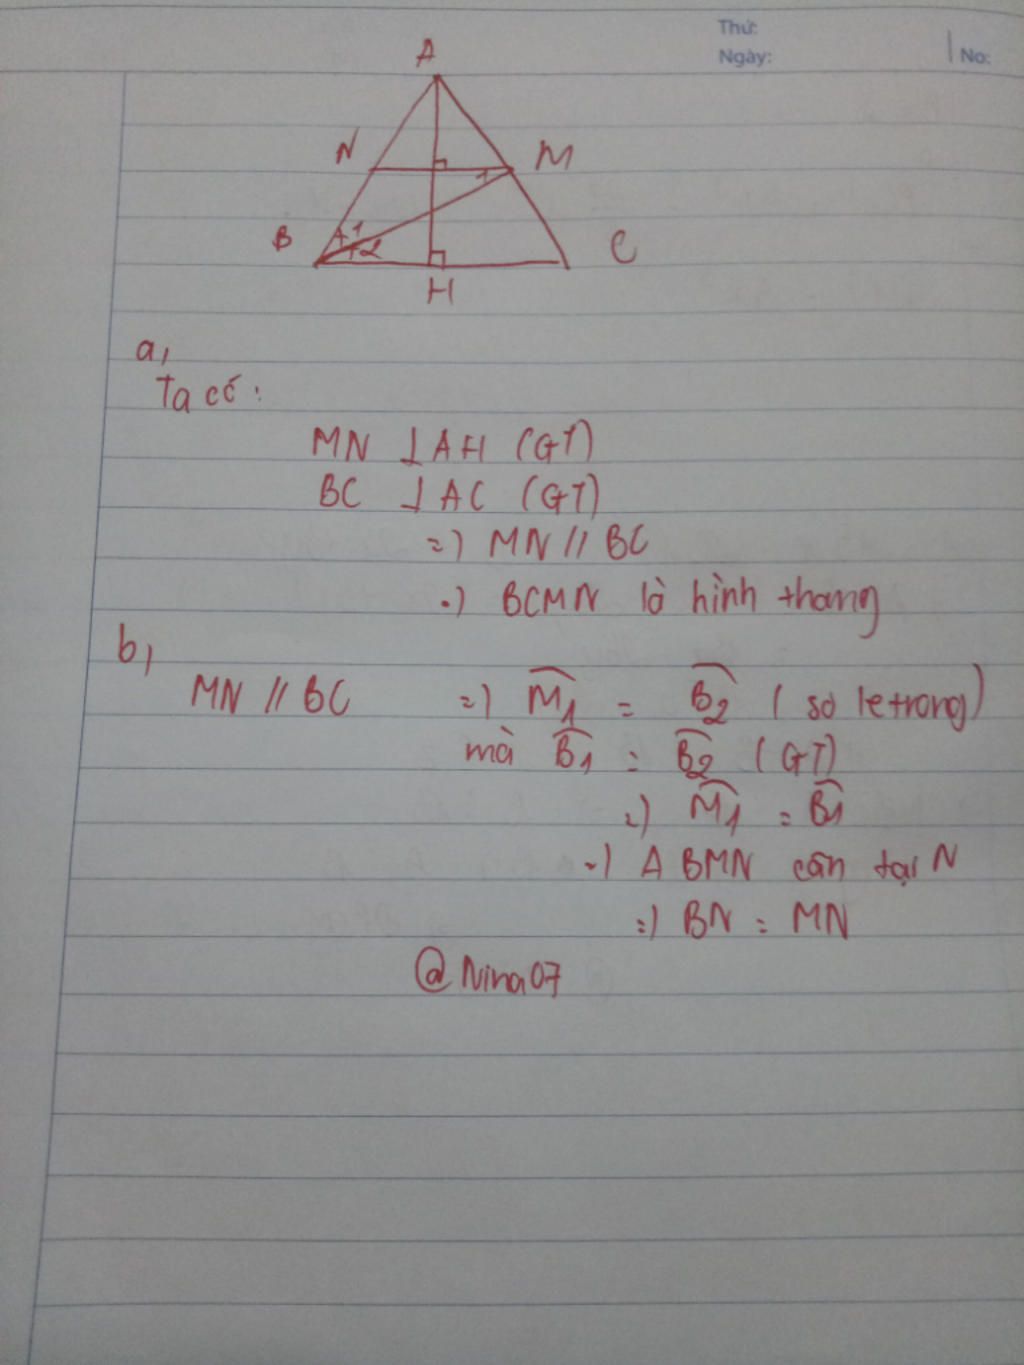 Thứ:
Ngày:
No:
A
N
M
1
B
1
2
C
H
a,
Ta có:
MN ⊥ AH (GT)
BC ⊥ AC (GT)
=) MN // BC
=) BCMN là hình thang
b,
MN // BC =) M̂1 = B̂2 (so le trong)
mà B̂1 = B̂2 (GT)
=) M̂1 = B̂1
=) Δ BMN cân tại N
=) BN = MN
@Nina07